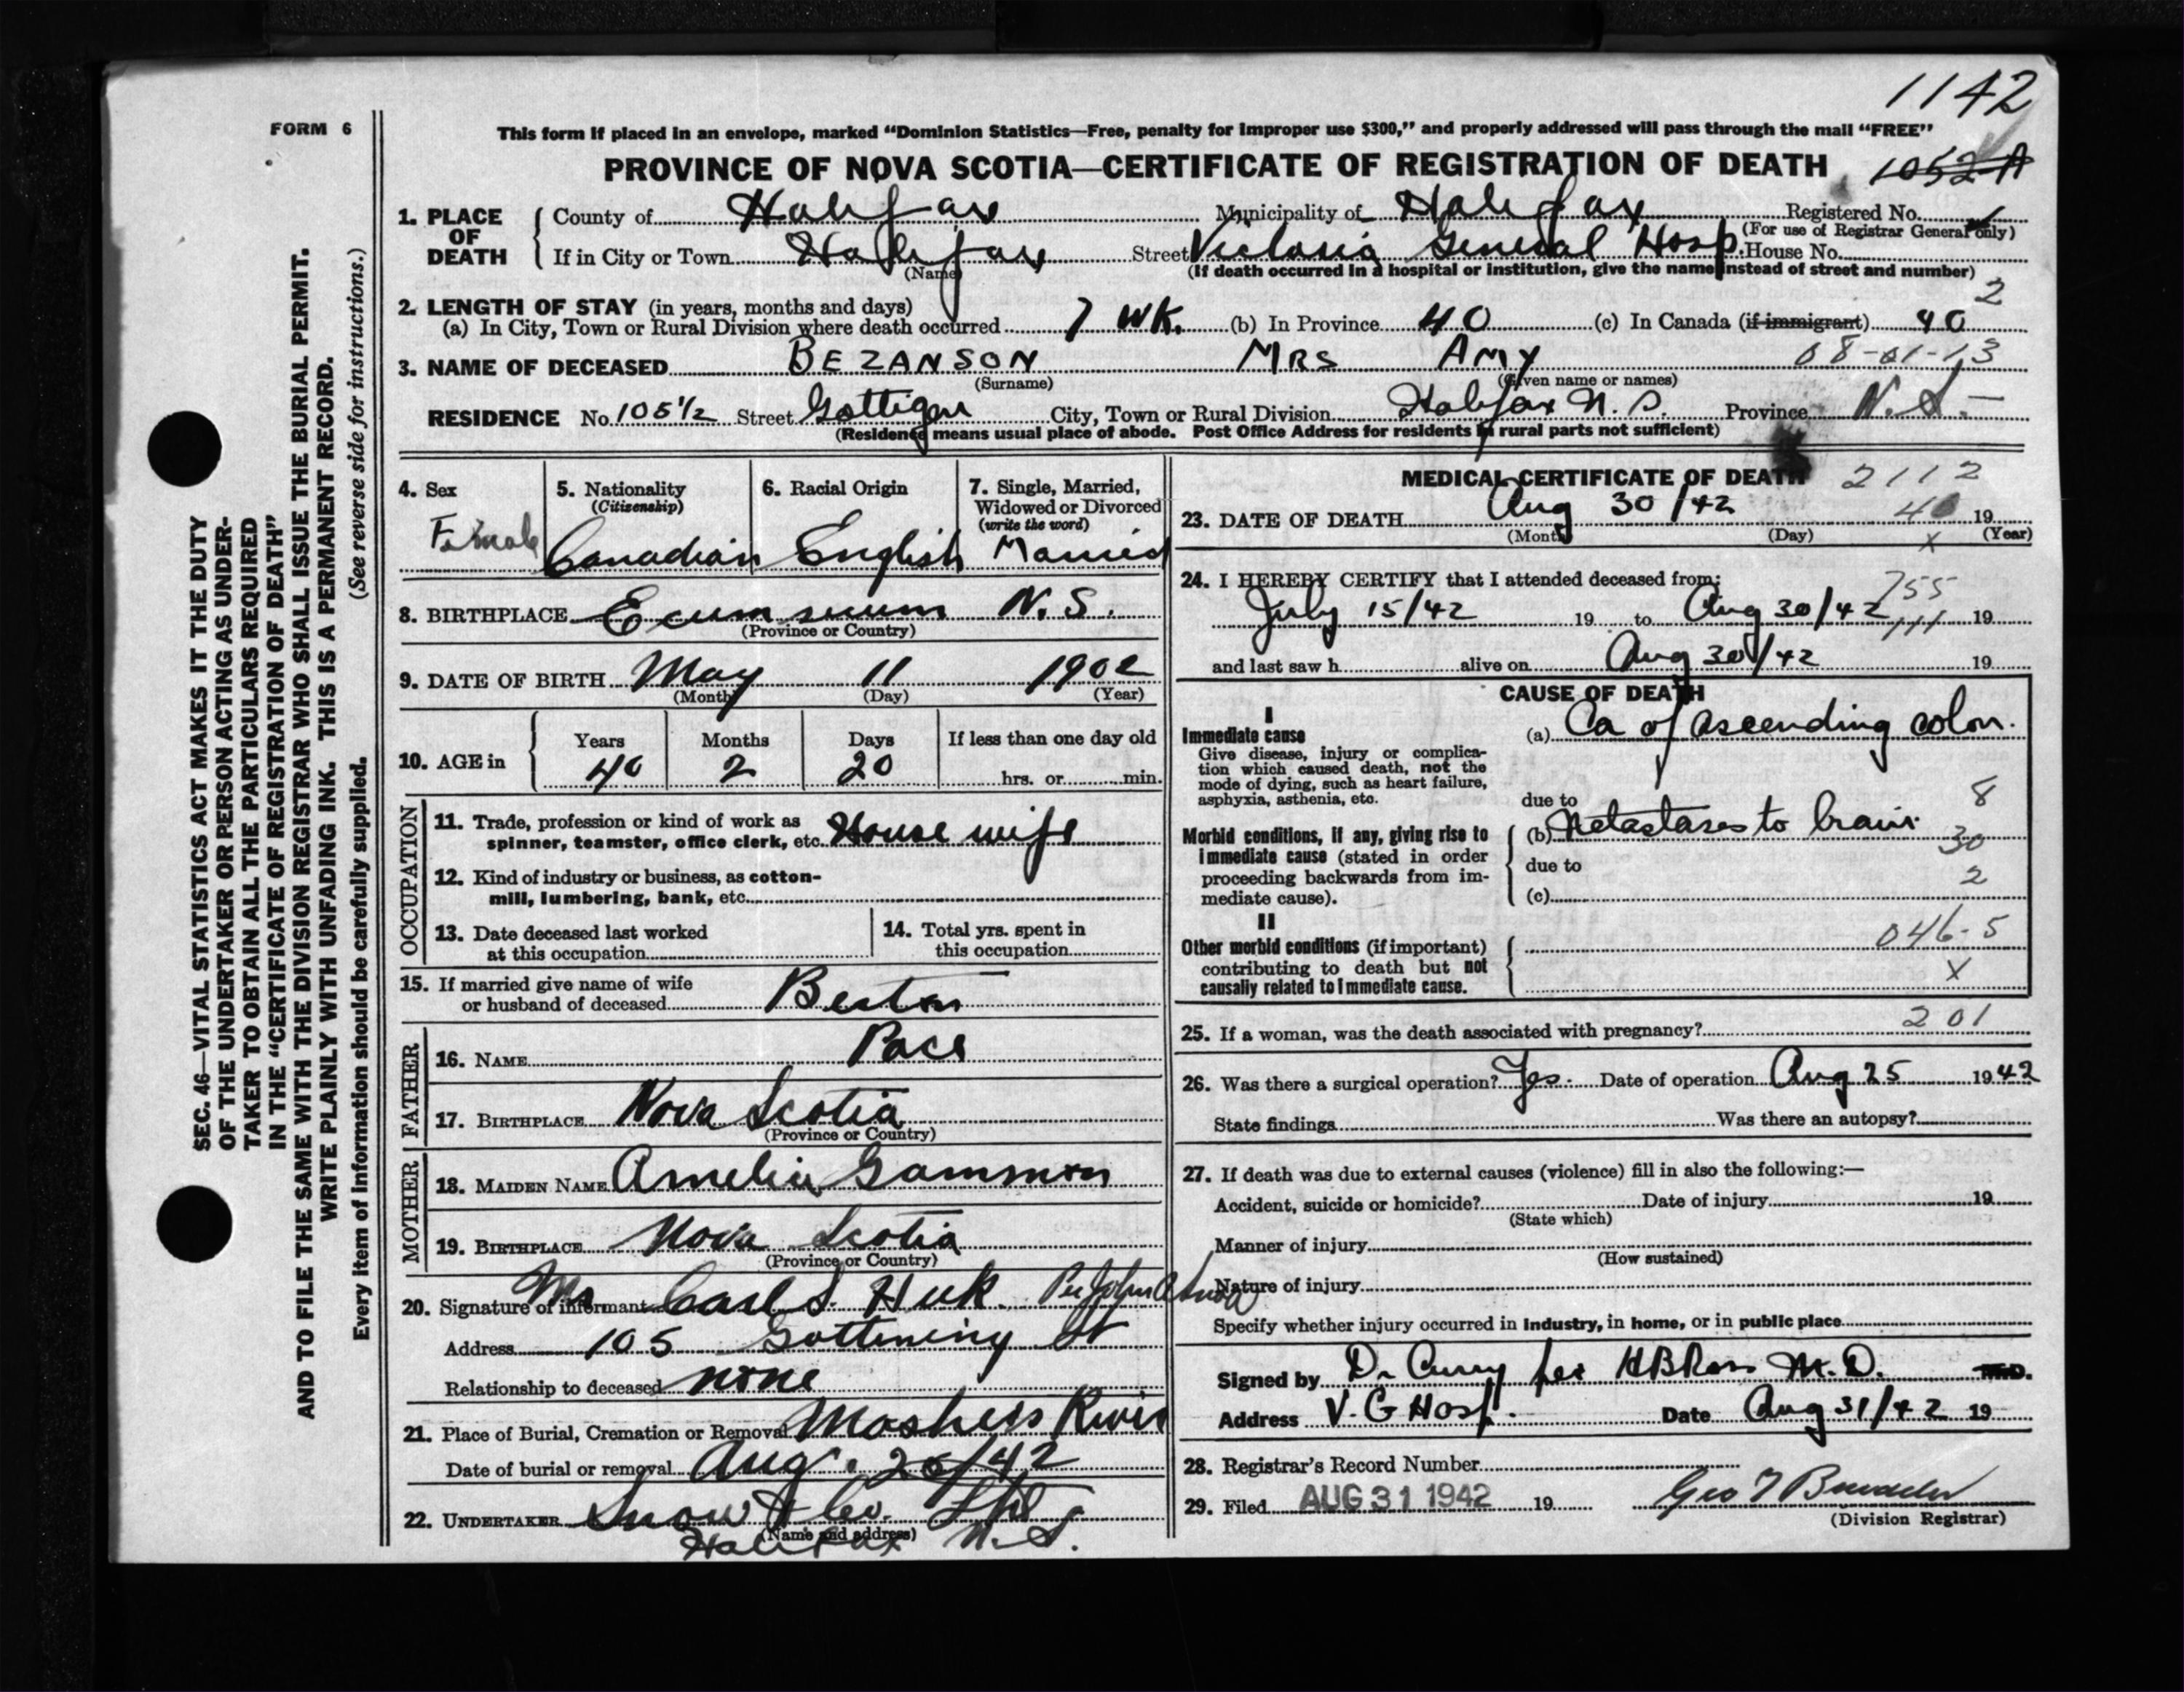 1142
FORM 6
This form if placed in an envelope, marked “Dominion Statistics—Free, penalty for improper use $300,” and properly addressed will pass through the mail “FREE”
PROVINCE OF NOVA SCOTIA—CERTIFICATE OF REGISTRATION OF DEATH 1052-A
1. PLACE OF DEATH
County of Halifax Municipality of Halifax Registered No.
(For use of Registrar General only)
If in City or Town Halifax Street Victoria General Hosp. House No.
(Name) (If death occurred in a hospital or institution, give the name instead of street and number)
2
2. LENGTH OF STAY (in years, months and days)
(a) In City, Town or Rural Division where death occurred 7 WK. (b) In Province 40 (c) In Canada (if immigrant) 40
3. NAME OF DECEASED BEZANSON MRS AMY 08-01-13
(Surname) (Given name or names)
RESIDENCE No. 105½ Street Gottigen City, Town or Rural Division Halifax N.S. Province N.S.
(Residence means usual place of abode. Post Office Address for residents in rural parts not sufficient)
4. Sex
Female
5. Nationality
(Citizenship)
Canadian
6. Racial Origin
English
7. Single, Married,
Widowed or Divorced
(write the word)
Married
8. BIRTHPLACE Ecum secum N.S.
(Province or Country)
9. DATE OF BIRTH May 11 1902
(Month) (Day) (Year)
10. AGE in
Years Months Days If less than one day old
40 2 20 hrs. or min.
OCCUPATION
11. Trade, profession or kind of work as
spinner, teamster, office clerk, etc. House wife
12. Kind of industry or business, as cotton-
mill, lumbering, bank, etc.
13. Date deceased last worked
at this occupation
14. Total yrs. spent in
this occupation
15. If married give name of wife
or husband of deceased
FATHER
16. NAME Pace
17. BIRTHPLACE Nova Scotia
(Province or Country)
MOTHER
18. MAIDEN NAME Amelia Gammon
19. BIRTHPLACE Nova Scotia
(Province or Country)
20. Signature of informant Carl S. Per John A Snow
Address 105 St
Relationship to deceased none
21. Place of Burial, Cremation or Removal Moshers River
Date of burial or removal Aug. /42
22. UNDERTAKER Snow & Co. Ltd
(Name and address)
Halifax N.S.
MEDICAL CERTIFICATE OF DEATH 2112
23. DATE OF DEATH Aug 30/42 40 19
(Month) (Day) x (Year)
24. I HEREBY CERTIFY that I attended deceased from: 755
July 15/42 19 to Aug 30/42 111 19
and last saw h alive on Aug 30/42 19
CAUSE OF DEATH
I
Immediate cause (a) Ca of ascending colon.
Give disease, injury or complica-
tion which caused death, not the
mode of dying, such as heart failure,
asphyxia, asthenia, etc.
due to 8
Morbid conditions, if any, giving rise to
immediate cause (stated in order
proceeding backwards from im-
mediate cause).
(b) Metastases to brain. 30
due to 2
(c)
II
Other morbid conditions (if important)
contributing to death but not
causally related to immediate cause.
046-5
X
25. If a woman, was the death associated with pregnancy? 201
26. Was there a surgical operation? Yes. Date of operation Aug 25 1942
State findings Was there an autopsy?
27. If death was due to external causes (violence) fill in also the following:—
Accident, suicide or homicide? Date of injury 19
(State which)
Manner of injury
(How sustained)
Nature of injury
Specify whether injury occurred in industry, in home, or in public place
Signed by Dr Curry per HB Ross M.D. M.D.
Address V. G Hosp. Date Aug 31/42 19
28. Registrar's Record Number
29. Filed AUG 31 1942 19 Geo
(Division Registrar)
SEC. 46—VITAL STATISTICS ACT MAKES IT THE DUTY
OF THE UNDERTAKER OR PERSON ACTING AS UNDER-
TAKER TO OBTAIN ALL THE PARTICULARS REQUIRED
IN THE “CERTIFICATE OF REGISTRATION OF DEATH”
AND TO FILE THE SAME WITH THE DIVISION REGISTRAR WHO SHALL ISSUE THE BURIAL PERMIT.
WRITE PLAINLY WITH UNFADING INK. THIS IS A PERMANENT RECORD.
Every item of information should be carefully supplied. (See reverse side for instructions.)